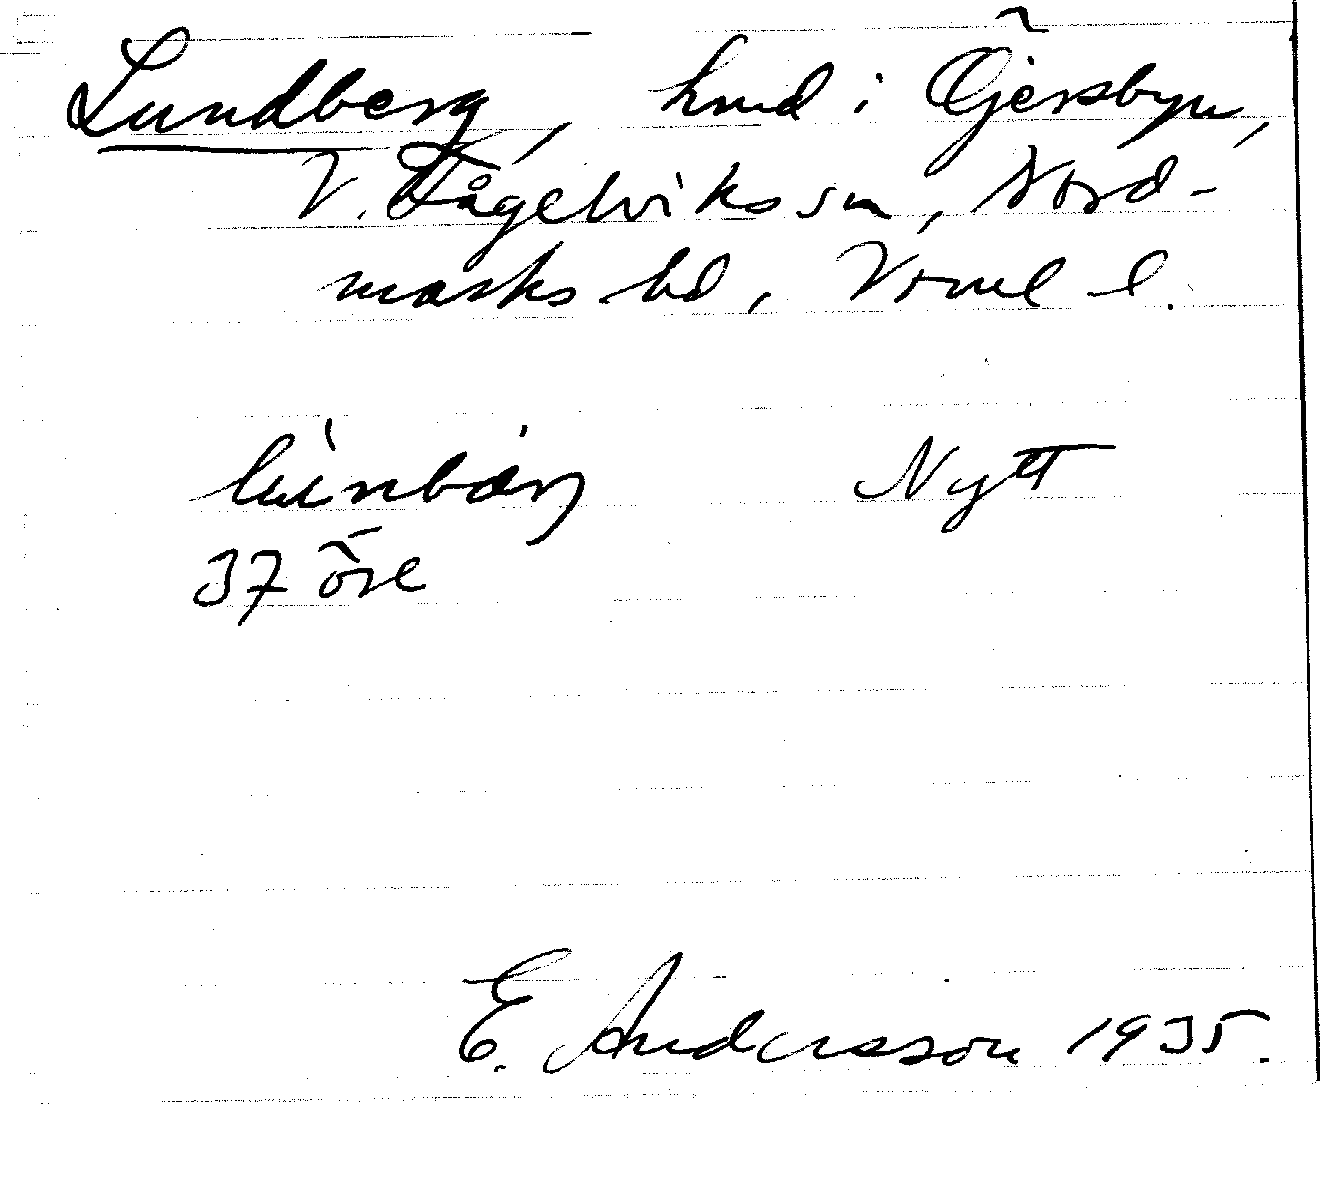 Lundberg, hmd i Öjersbyn,
V. Fågelviks sn, Nord-
marks hd, Vrml l.
lúnbàrj Nytt
37 öre
E. Andersson 1935.